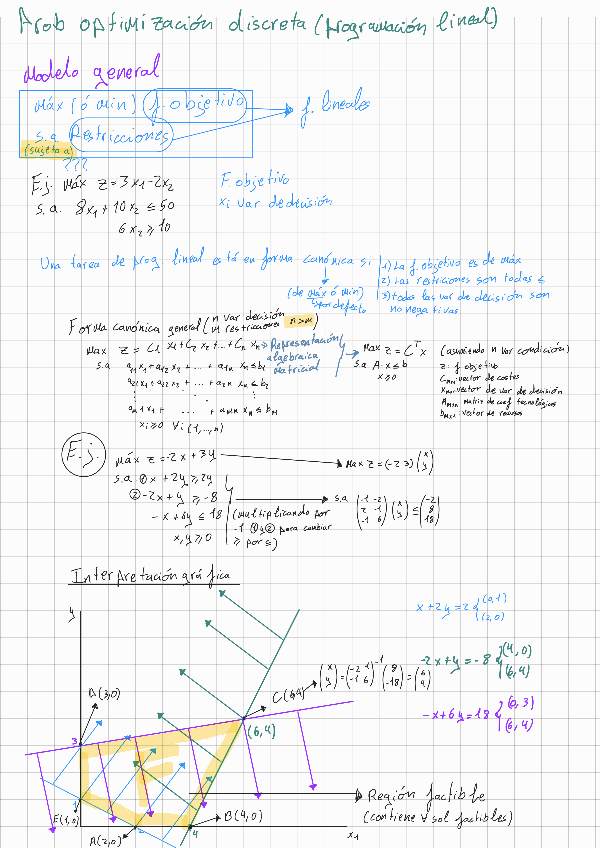 Prob optimización discreta (programación lineal)
Modelo general
Máx (ó min) f. objetivo
f. lineales
s.a. Restricciones
(sujeto a)
???
Ej. Máx z=3x₁-2x₂
F objetivo
s.a. 8x₁+10x₂≤50
xi var de decisión
6x₂≥10
Una tarea de prog lineal está en forma canónica si
1) La f objetivo es de máx
2) Las restriciones son todas ≤
3) toda las var de decisión son
no negativas
(de máx ó min)
por defecto
Forma canónica general (n var decisión
m restricciones n>m
Max z=C₁x₁+C₂x₂+...+Cn xn
s.a a₁₁x₁+a₁₂x₂+...+a₁n xn≤b₁
a₂₁x₁+a₂₂x₂+...+a₂n xn≤b₂
am1x₁+...+amn xn≤bm
xi≥0 ∀i (1,...,n)
Representación
algebraica
matricial
Max z=Cᵀx (asumiendo n var condición)
s.a A·x≤b
x≥0
z: f objetivo
Cnx1: vector de costes
Xnx1: vector de var de decisión
Amxn: matriz de coef tecnológicos
bmx1: vector de recursos
E.j.
Máx z=-2x+3y
Max z=(-2 3)(x y)
s.a. ①x+2y≥2y
②-2x+y≥-8
-x+6y≤18
x,y≥0
(multiplicando por
-1 ①y② para cambiar
≥ por ≤)
s.a (-1 -2
2 -1
-1 6) (x y) ≤ (-2
8
18)
Interpretación gráfica
y
x+2y=2 {(0,1)
(2,0)
-2x+y=-8 {(4,0)
(6,4)
-x+6y=18 {(0,3)
(6,4)
D(3,0)
C(6,4)
(x y)=(-2 1
-1 6)⁻¹(8
-18)=(6
4)
(6,4)
3
1
E(1,0)
A(2,0)
2
4
B(4,0)
x₁
Región factible
(contiene ∀ sol factibles)